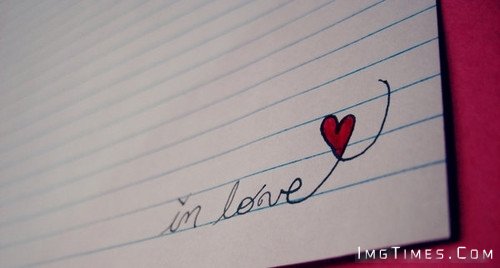 in love
ImgTimes.Com